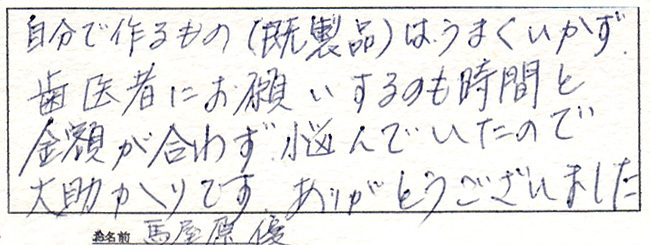 自分で作るもの(既製品)はうまくいかず、
歯医者にお願いするのも時間と
金額が合わず、悩んでいたので
大助かりです。ありがとうございました
お名前 馬屋原 優